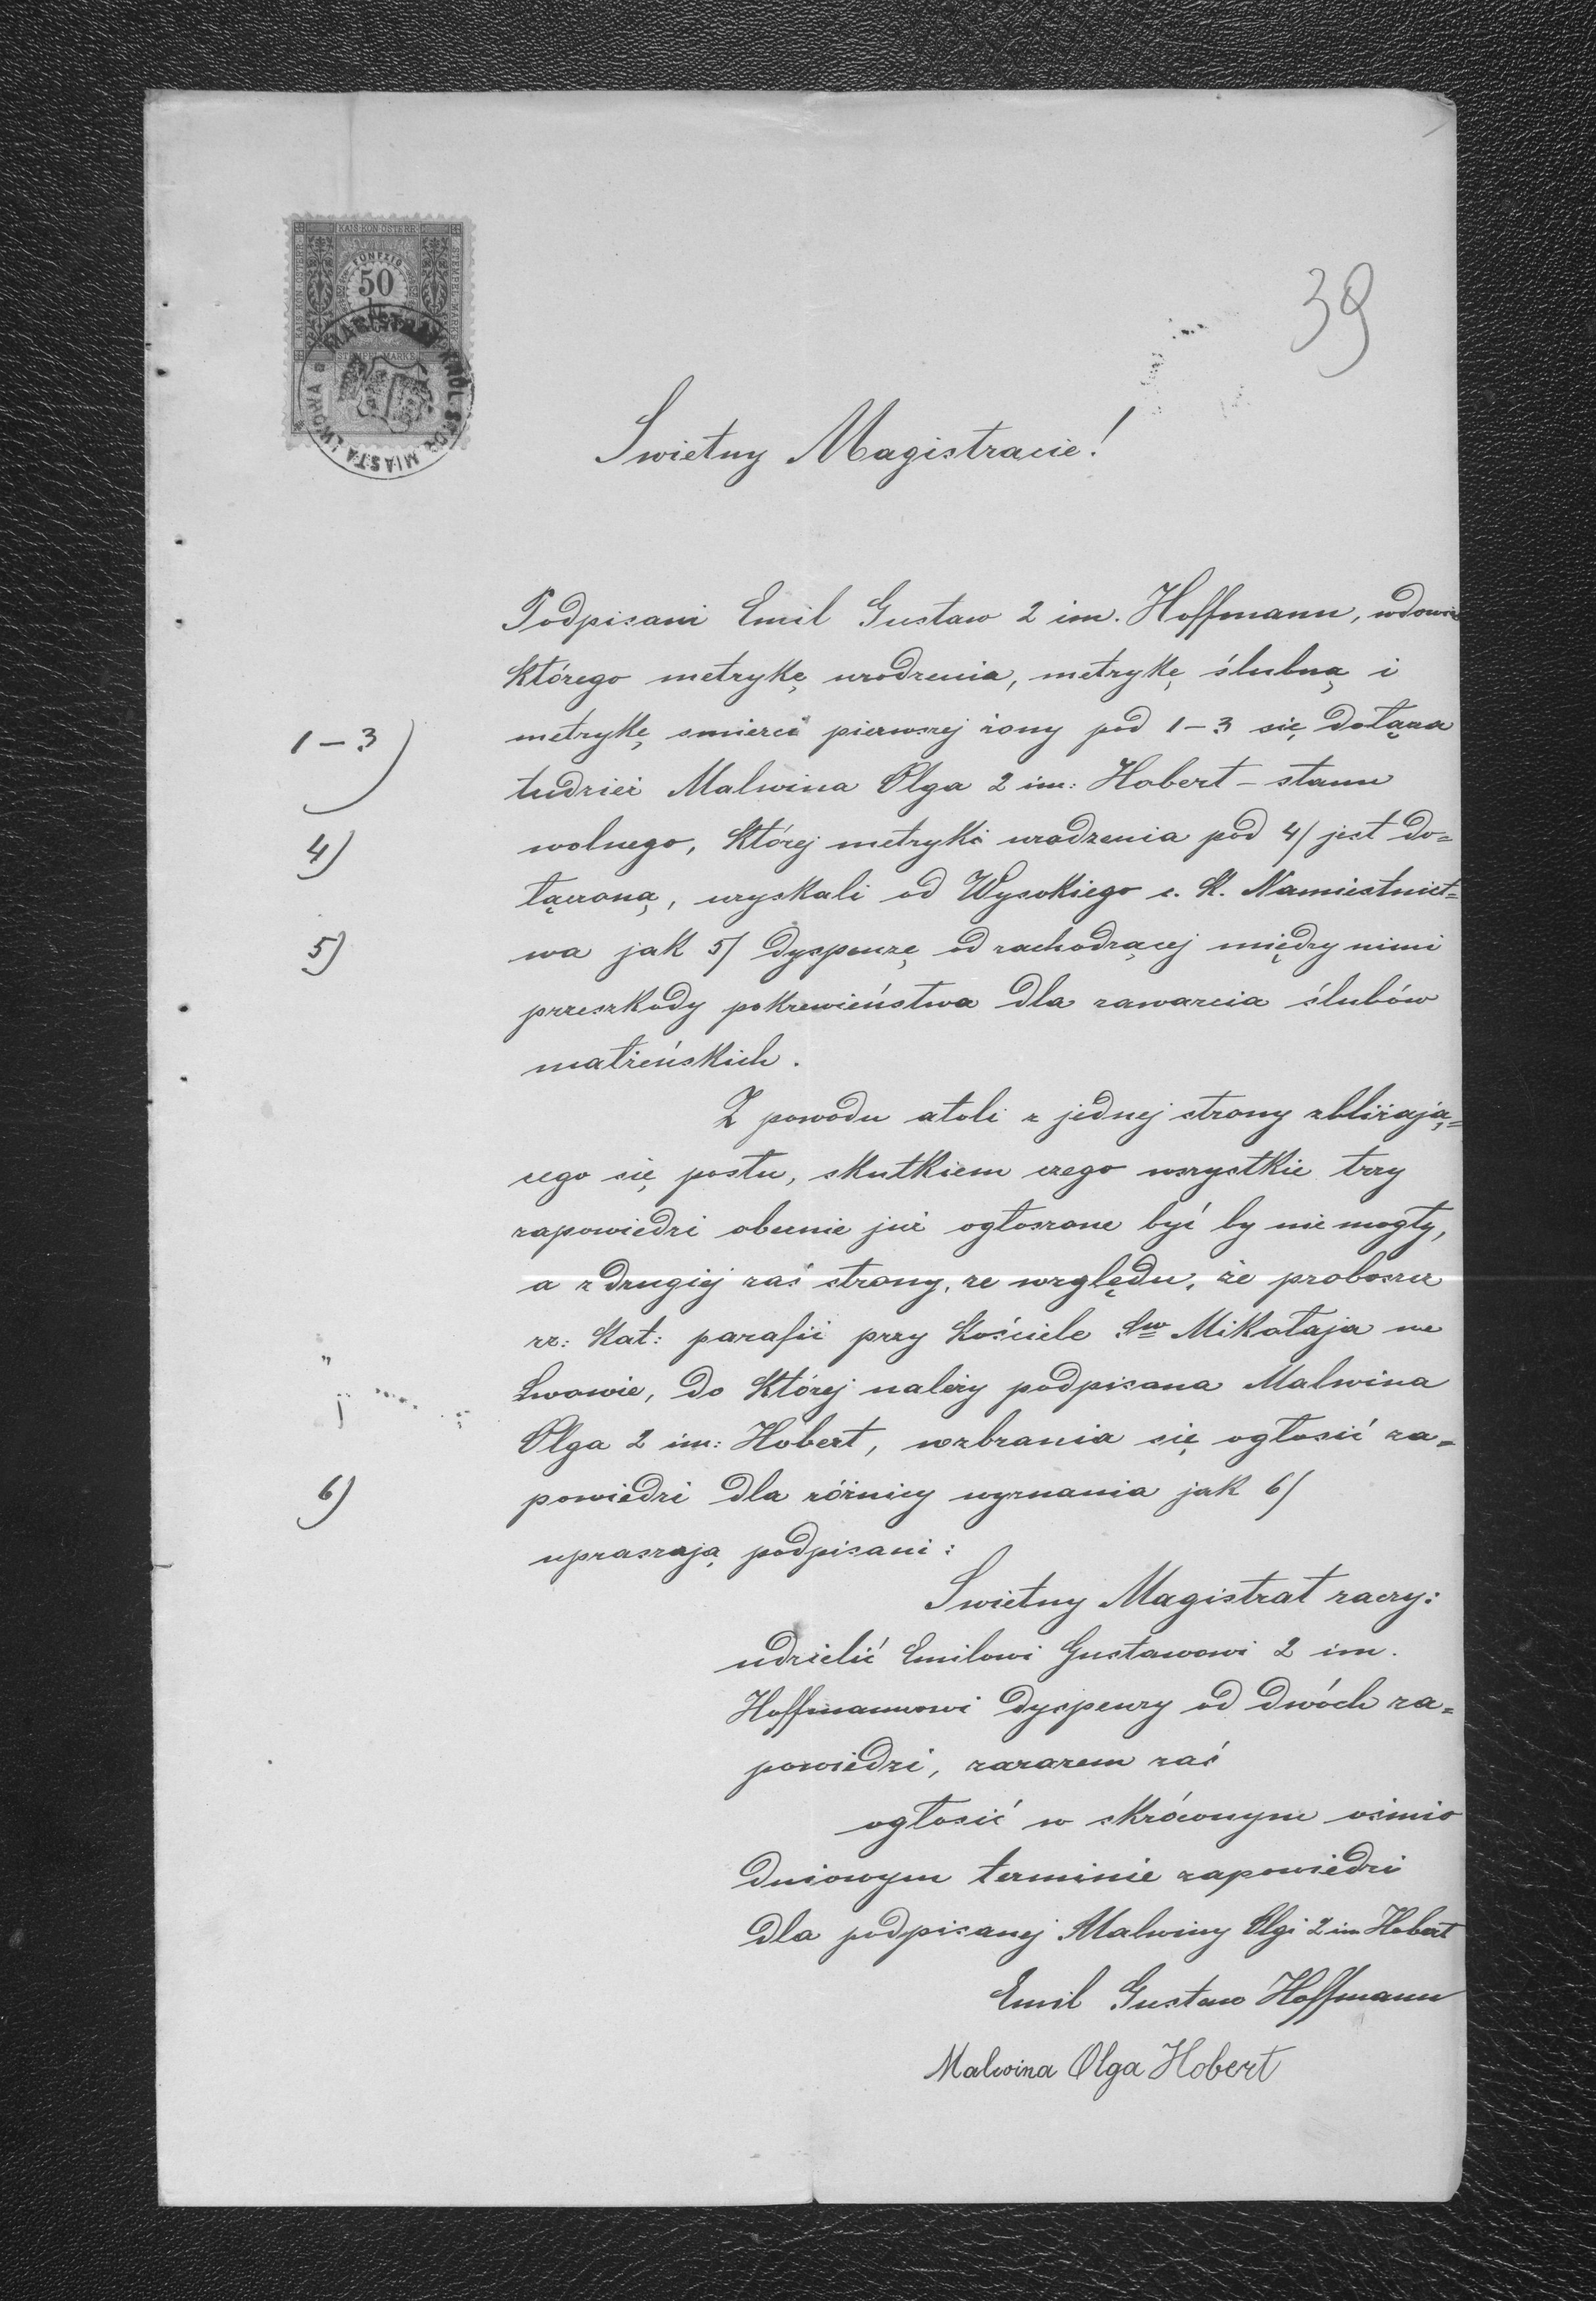 KAIS. KÖN. ÖSTERR.
FÜNFZIG
50
STEMPEL MARKE
MAGISTRAT KRÓL. STOŁ. MIASTA LWOWA
39
Swietny Magistracie!
Podpisani Emil Gustaw 2 im. Hoffmann, wdowiec
którego metrykę urodzenia, metrykę ślubną i
1–3) metrykę smierci pierwszej żony pod 1–3 się dołącza
tudzież Malwina Olga 2 im: Hobert – stanu
4) wolnego, której metryka urodzenia pod 4/ jest do=
łączoną, uzyskali od Wysokiego c. k. Namiestnict=
5) wa jak 5/ dyspenzę od zachodzącej między nimi
przeszkody pokrewieństwa dla zawarcia ślubów
małżeńskich.
Z powodu atoli z jednej strony zbliżają=
cego się postu, skutkiem czego wszystkie trzy
zapowiedzi obecnie już ogłoszone być by nie mogły,
a z drugiej zaś strony, ze względu, że proboszcz
rz: kat: parafii przy kościele Sw Mikołaja we
Lwowie, do której należy podpisana Malwina
Olga 2 im: Hobert, wzbrania się ogłosić za=
6) powiedzi dla różnicy wyznania jak 6/
upraszają podpisani:
Swietny Magistrat raczy:
udzielić Emilowi Gustawowi 2 im.
Hoffmannowi dyspenzy od dwóch za=
powiedzi, zarazem zaś
ogłosić w skróconym ośmio
dniowym terminie zapowiedzi
dla podpisanej Malwiny Olgi 2 im Hobert
Emil Gustaw Hoffmann
Malwina Olga Hobert